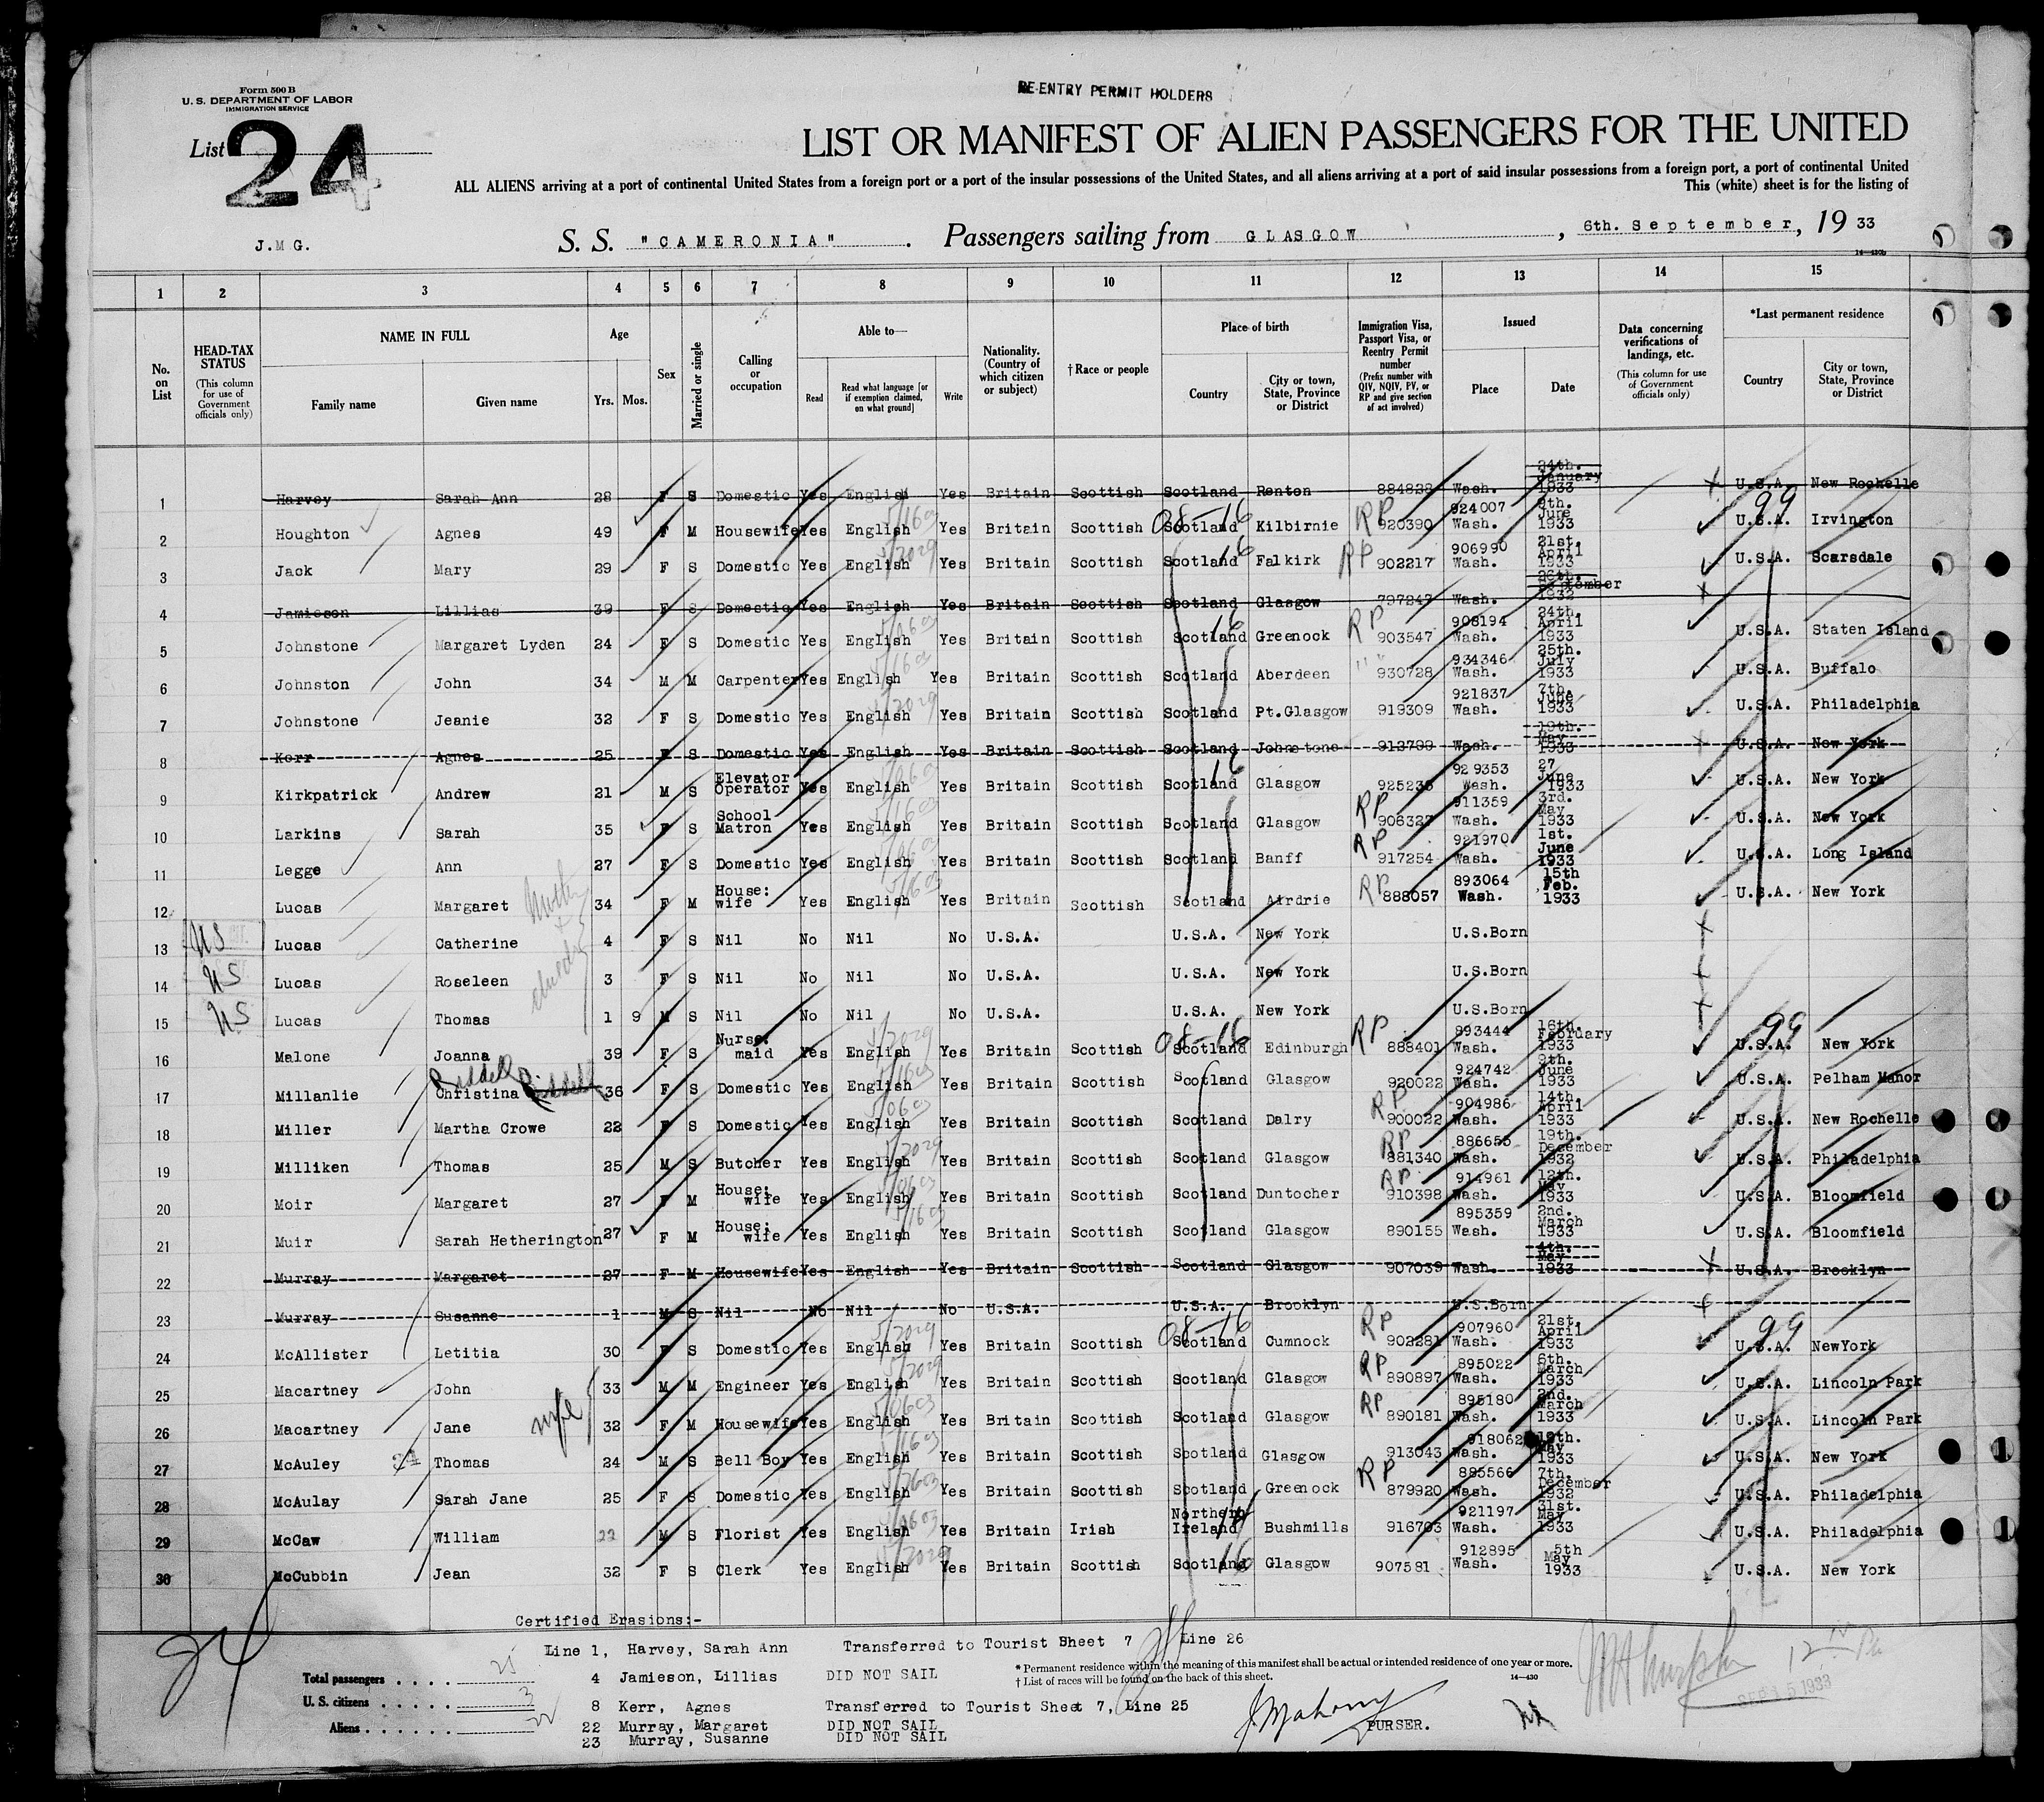 Form 500 B
U. S. DEPARTMENT OF LABOR
IMMIGRATION SERVICE
RE-ENTRY PERMIT HOLDERS
List 24
LIST OR MANIFEST OF ALIEN PASSENGERS FOR THE UNITED
ALL ALIENS arriving at a port of continental United States from a foreign port or a port of the insular possessions of the United States, and all aliens arriving at a port of said insular possessions from a foreign port, a port of continental United
This (white) sheet is for the listing of
J.M G. S. S. "CAMERONIA" . Passengers sailing from GLASGOW , 6th. September, 19 33
14—430b
1 2 3 4 5 6 7 8 9 10 11 12 13 14 15
No. on List
HEAD-TAX STATUS
(This column for use of Government officials only)
NAME IN FULL
Family name Given name
Age
Yrs. Mos.
Sex
Married or single
Calling or occupation
Able to—
Read Read what language [or if exemption claimed, on what ground] Write
Nationality. (Country of which citizen or subject)
† Race or people
Place of birth
Country City or town, State, Province or District
Immigration Visa, Passport Visa, or Reentry Permit number
(Prefix number with QIV, NQIV, PV, or RP and give section of act involved)
Issued
Place Date
Data concerning verifications of landings, etc.
(This column for use of Government officials only)
*Last permanent residence
Country City or town, State, Province or District
1 Harvey Sarah Ann 28 F S Domestic Yes English Yes Britain Scottish Scotland Renton 884828 Wash. 24th. January 1933 U.S.A. New Rochelle
2 Houghton Agnes 49 F M Housewife Yes English Yes Britain Scottish Scotland Kilbirnie RP 920390 924007 Wash. 9th. June 1933 U.S.A. Irvington
3 Jack Mary 29 F S Domestic Yes English Yes Britain Scottish Scotland Falkirk RP 902217 906990 Wash. 21st. April 1933 U.S.A. Scarsdale
4 Jamieson Lillias 39 F S Domestic Yes English Yes Britain Scottish Scotland Glasgow 797247 Wash. 26th. September 1932
5 Johnstone Margaret Lyden 24 F S Domestic Yes English Yes Britain Scottish Scotland Greenock RP 903547 908194 Wash. 24th. April 1933 U.S.A. Staten Island
6 Johnston John 34 M M Carpenter Yes English Yes Britain Scottish Scotland Aberdeen 930728 934346 Wash. 25th. July 1933 U.S.A. Buffalo
7 Johnstone Jeanie 32 F S Domestic Yes English Yes Britain Scottish Scotland Pt.Glasgow 919309 921837 Wash. 7th. June 1933 U.S.A. Philadelphia
8 Kerr Agnes 25 F S Domestic Yes English Yes Britain Scottish Scotland Johnstone 912799 Wash. 19th. May 1933 U.S.A. New York
9 Kirkpatrick Andrew 21 M S Elevator Operator Yes English Yes Britain Scottish Scotland Glasgow 925235 929353 Wash. 27 June 1933 U.S.A. New York
10 Larkins Sarah 35 F S School Matron Yes English Yes Britain Scottish Scotland Glasgow RP 906327 911359 Wash. 3rd. May 1933 U.S.A. New York
11 Legge Ann 27 F S Domestic Yes English Yes Britain Scottish Scotland Banff RP 917254 921970 Wash. 1st. June 1933 U.S.A. Long Island
12 Lucas Margaret 34 F M House: wife Yes English Yes Britain Scottish Scotland Airdrie RP 888057 893064 Wash. 15th Feb. 1933 U.S.A. New York
13 US Lucas Catherine 4 F S Nil No Nil No U.S.A. U.S.A. New York U.S.Born
14 US Lucas Roseleen 3 F S Nil No Nil No U.S.A. U.S.A. New York U.S.Born
15 US Lucas Thomas 1 9 M S Nil No Nil No U.S.A. U.S.A. New York U.S.Born
16 Malone Joanna 39 F S Nurse: maid Yes English Yes Britain Scottish Scotland Edinburgh RP 888401 893444 Wash. 16th. February 1933 U.S.A. New York
17 Millanlie Christina Riddell 36 F S Domestic Yes English Yes Britain Scottish Scotland Glasgow 920022 924742 Wash. 9th. June 1933 U.S.A. Pelham Manor
18 Miller Martha Crowe 22 F S Domestic Yes English Yes Britain Scottish Scotland Dalry RP 900022 904986 Wash. 14th. April 1933 U.S.A. New Rochelle
19 Milliken Thomas 25 M S Butcher Yes English Yes Britain Scottish Scotland Glasgow RP 881340 886655 Wash. 19th. December 1932 U.S.A. Philadelphia
20 Moir Margaret 27 F M House: wife Yes English Yes Britain Scottish Scotland Duntocher RP 910398 914961 Wash. 12th. May 1933 U.S.A. Bloomfield
21 Muir Sarah Hetherington 27 F M House: wife Yes English Yes Britain Scottish Scotland Glasgow 890155 895359 Wash. 2nd. March 1933 U.S.A. Bloomfield
22 Murray Margaret 27 F M Housewife Yes English Yes Britain Scottish Scotland Glasgow 907039 Wash. 4th. May 1933 U.S.A. Brooklyn
23 Murray Susanne 1 M S Nil No Nil No U.S.A. U.S.A. Brooklyn U.S.Born
24 McAllister Letitia 30 F S Domestic Yes English Yes Britain Scottish Scotland Cumnock RP 902281 907960 Wash. 21st. April 1933 U.S.A. NewYork
25 Macartney John 33 M M Engineer Yes English Yes Britain Scottish Scotland Glasgow RP 890897 895022 Wash. 6th. March 1933 U.S.A. Lincoln Park
26 Macartney Jane wife 32 F M Housewife Yes English Yes Britain Scottish Scotland Glasgow RP 890181 895180 Wash. 2nd. March 1933 U.S.A. Lincoln Park
27 McAuley Thomas 24 M S Bell Boy Yes English Yes Britain Scottish Scotland Glasgow 913043 918062 Wash. 12th. May 1933 U.S.A. New York
28 McAulay Sarah Jane 25 F S Domestic Yes English Yes Britain Scottish Scotland Greenock RP 879920 885566 Wash. 7th. December 1932 U.S.A. Philadelphia
29 McCaw William 22 M S Florist Yes English Yes Britain Irish Northern Ireland Bushmills 916703 921197 Wash. 31st. May 1933 U.S.A. Philadelphia
30 McCubbin Jean 32 F S Clerk Yes English Yes Britain Scottish Scotland Glasgow 907581 912895 Wash. 5th May 1933 U.S.A. New York
Certified Erasions:-
Line 1, Harvey, Sarah Ann Transferred to Tourist Sheet 7 Line 26
4 Jamieson, Lillias DID NOT SAIL
8 Kerr, Agnes Transferred to Tourist Sheet 7, Line 25
22 Murray, Margaret DID NOT SAIL
23 Murray, Susanne DID NOT SAIL
24
Total passengers 25
U. S. citizens 3
Aliens 22
* Permanent residence within the meaning of this manifest shall be actual or intended residence of one year or more.
† List of races will be found on the back of this sheet.
14—430
J. Mahony
PURSER.
SEP 15 1933